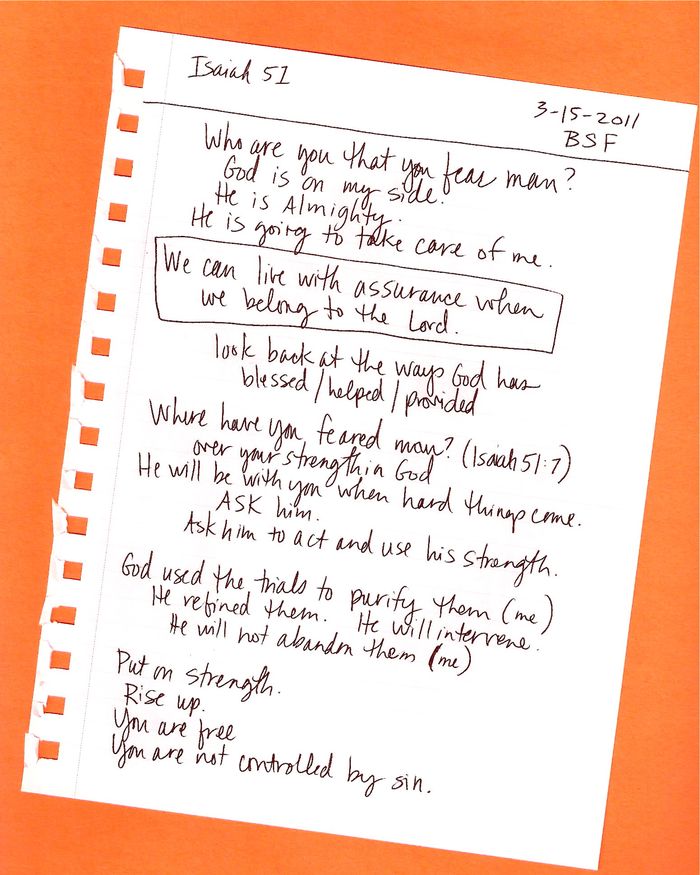 Isaiah 51
3-15-2011
BSF
Who are you that you fear man?
God is on my side.
He is Almighty.
He is going to take care of me.
We can live with assurance when
we belong to the Lord.
look back at the ways God has
blessed/helped/provided
Where have you feared man? (Isaiah 51:7)
over your strength in God
He will be with you when hard things come.
ASK him.
Ask him to act and use his strength.
God used the trials to purify them (me)
He refined them. He will intervene.
He will not abandon them (me)
Put on strength.
Rise up.
You are free
You are not controlled by sin.